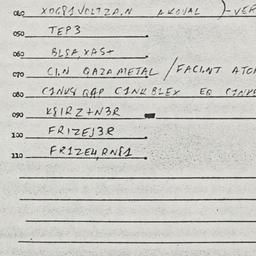 040 XOG81VOLTZA,N AKOVAL )-VER
050 TEP3
060 BLSA,XAS+
070 CI,N QAZAMETAL / FACI,NT ATO
080 C1NK4 QAP C1NK BLEX EQ C1NK
090 K81RZ+N3R
100 FR1ZEJ3R
110 FR1ZE4,RN81